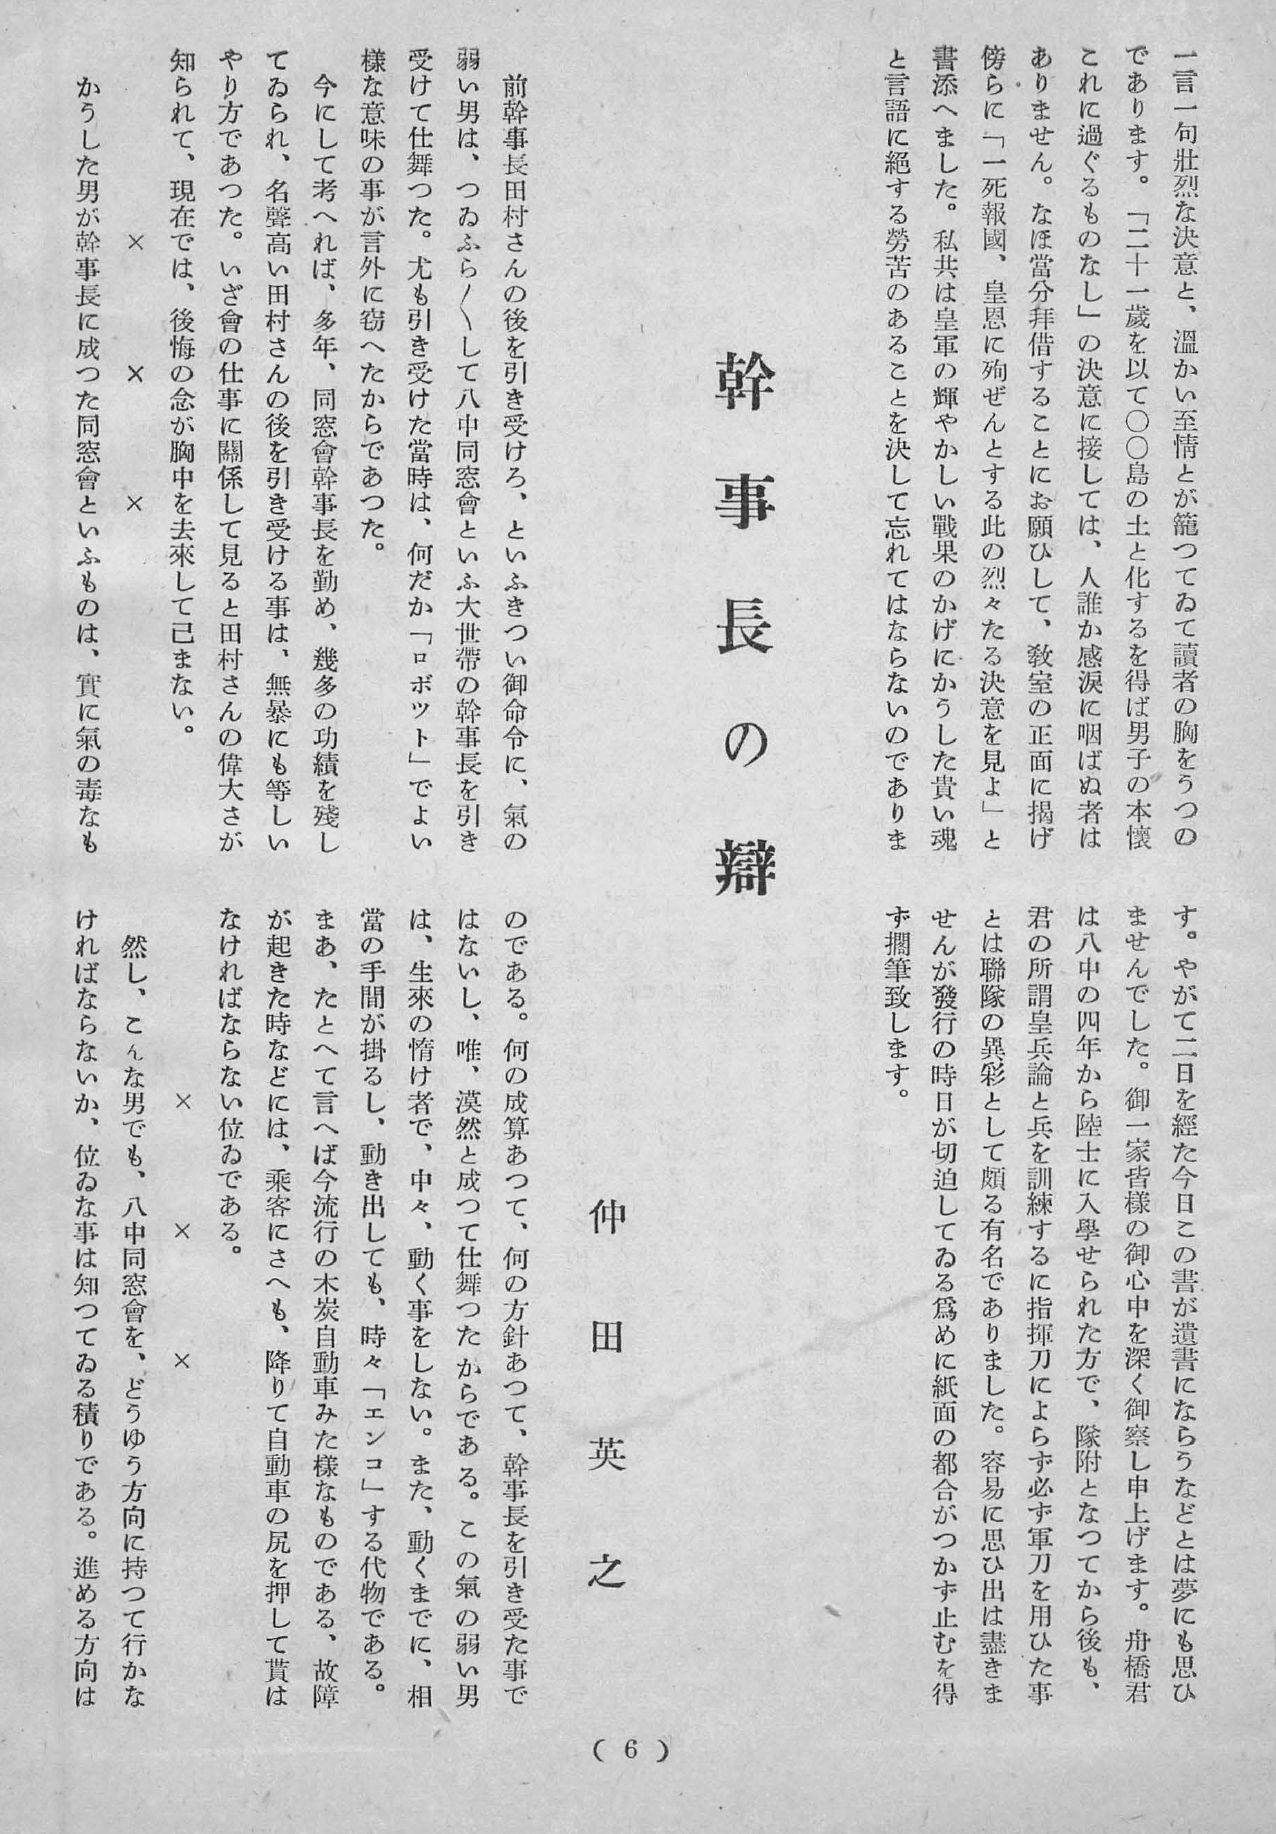 一言一句壯烈な決意と、溫かい至情とが籠つてゐて讀者の胸をうつの
であります。「二十一歲を以て〇〇島の土と化するを得ば男子の本懷
これに過ぐるものなし」の決意に接しては、人誰か感淚に咽ばぬ者は
ありません。なほ當分拜借することにお願ひして、敎室の正面に揭げ
傍らに「一死報國、皇恩に殉ぜんとする此の烈々たる決意を見よ」と
書添へました。私共は皇軍の輝やかしい戰果のかげにかうした貴い魂
と言語に絕する勞苦のあることを決して忘れてはならないのでありま
す。やがて二日を經た今日この書が遺書にならうなどとは夢にも思ひ
ませんでした。御一家皆樣の御心中を深く御察し申上げます。舟橋君
は八中の四年から陸士に入學せられた方で、隊附となつてから後も、
君の所謂皇兵論と兵を訓練するに指揮刀によらず必ず軍刀を用ひた事
とは聯隊の異彩として頗る有名でありました。容易に思ひ出は盡きま
せんが發行の時日が切迫してゐる爲めに紙面の都合がつかず止むを得
ず擱筆致します。
幹事長の辯
仲田英之
前幹事長田村さんの後を引き受けろ、といふきつい御命令に、氣の
弱い男は、つゐふら〱して八中同窓會といふ大世帶の幹事長を引き
受けて仕舞つた。尤も引き受けた當時は、何だか「ロボツト」でよい
樣な意味の事が言外に窃へたからであつた。
今にして考へれば、多年、同窓會幹事長を勤め、幾多の功績を殘し
てゐられ、名聲高い田村さんの後を引き受ける事は、無暴にも等しい
やり方であつた。いざ會の仕事に關係して見ると田村さんの偉大さが
知られて、現在では、後悔の念が胸中を去來して已まない。
× × ×
かうした男が幹事長に成つた同窓會といふものは、實に氣の毒なも
のである。何の成算あつて、何の方針あつて、幹事長を引き受た事で
はないし、唯、漠然と成つて仕舞つたからである。この氣の弱い男
は、生來の惰け者で、中々、動く事をしない。また、動くまでに、相
當の手間が掛るし、動き出しても、時々「エンコ」する代物である。
まあ、たとへて言へば今流行の木炭自動車みた樣なものである、故障
が起きた時などには、乘客にさへも、降りて自動車の尻を押して貰は
なければならない位ゐである。
× × ×
然し、こんな男でも、八中同窓會を、どうゆう方向に持つて行かな
ければならないか、位ゐな事は知つてゐる積りである。進める方向は
( 6 )